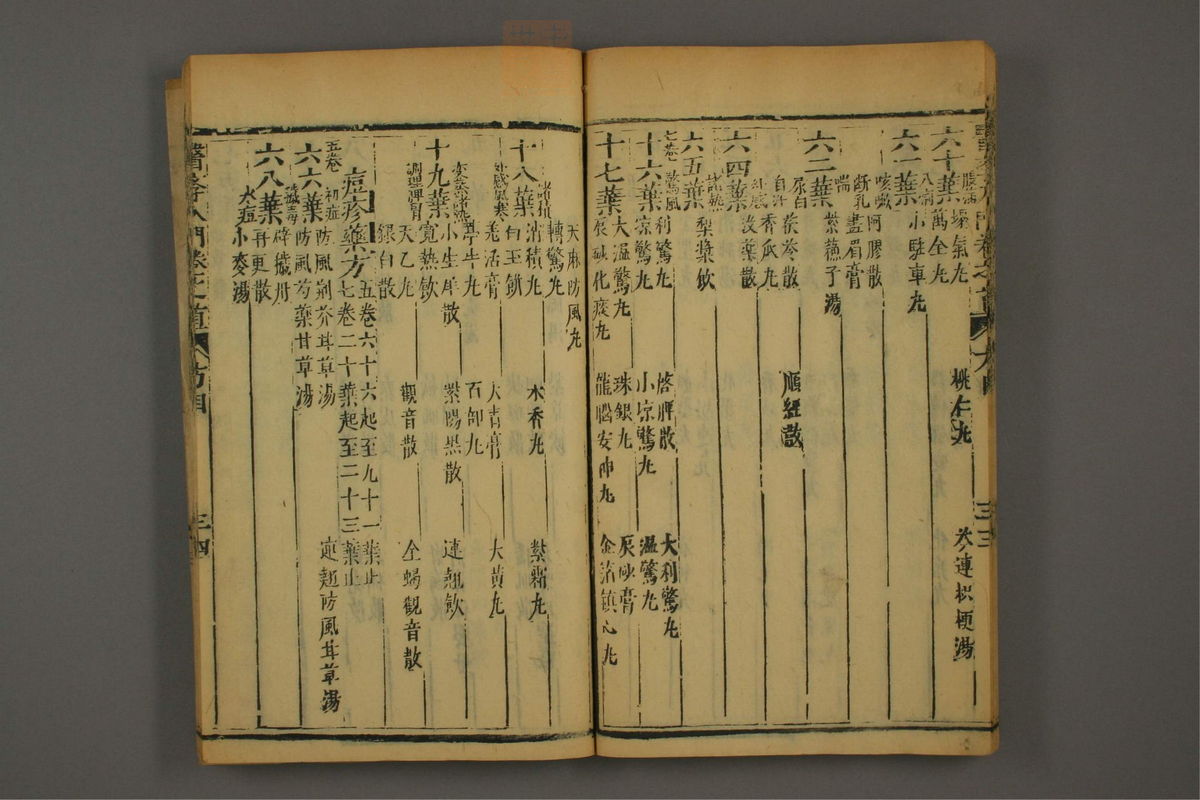 六十葉
塌氣丸
桃仁丸
萬全丸
六一葉
小駐車丸
咳嗽
阿膠散
斷乳
畫眉膏
喘
紫蘇子湯
六二葉
尿白
茯苓散
順經散
自汗
香瓜丸
六四葉
六五葉
梨漿飲
七卷
驚風
利驚丸
啓脾散
大利驚丸
十六葉
凉驚丸
小凉驚丸
溫驚丸
大溫驚丸
珠銀丸
辰砂膏
十七葉
辰砂化痰丸
龍腦安神丸
金箔鎮心丸
天麻防風丸
轉驚丸
諸積
消積丸
木香丸
紫霜丸
十八葉
白玉餅
外感風寒
羌活膏
大青膏
大黃丸
百部丸
變蒸諸熱
小生犀散
紫陽黑散
連翹飲
十九葉
寬熱飲
調理脾胃
天乙丸
觀音散
全蝎觀音散
銀白散
痘疹藥方
五卷六十六起至九十一葉止
七卷二十葉起至二十三葉止
五卷
初痘
防風荆芥甘草湯
連翹防風甘草湯
六六葉
防風芍藥甘草湯
穢毒
辟穢丹
六八葉
再更散
水痘
小麥湯
醫學入門卷之首
方目
三四